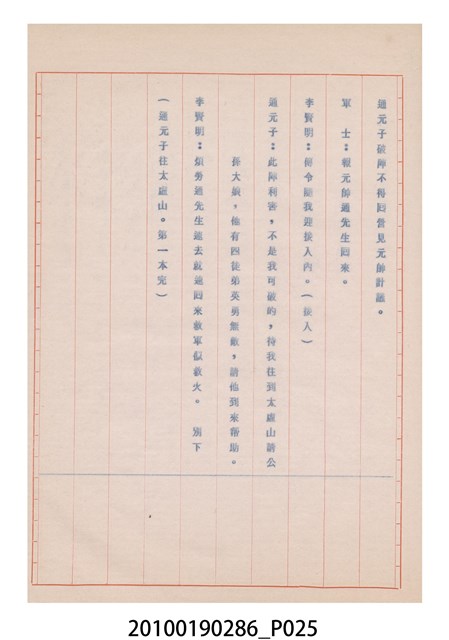 通元子破陣不得回營見元帥計議。
軍　士：報元帥通先生回來。
李賢明：傳令隨我迎接入內。（接入）
通元子：此陣利害，不是我可破的，待我往到太盧山請公
孫大娘，他有四徒弟英勇無敵，請他到來幫助。
李賢明：煩勞通先生速去就速回來救軍似救火。　別下
（通元子往太盧山。第一本完）
20100190286_P025